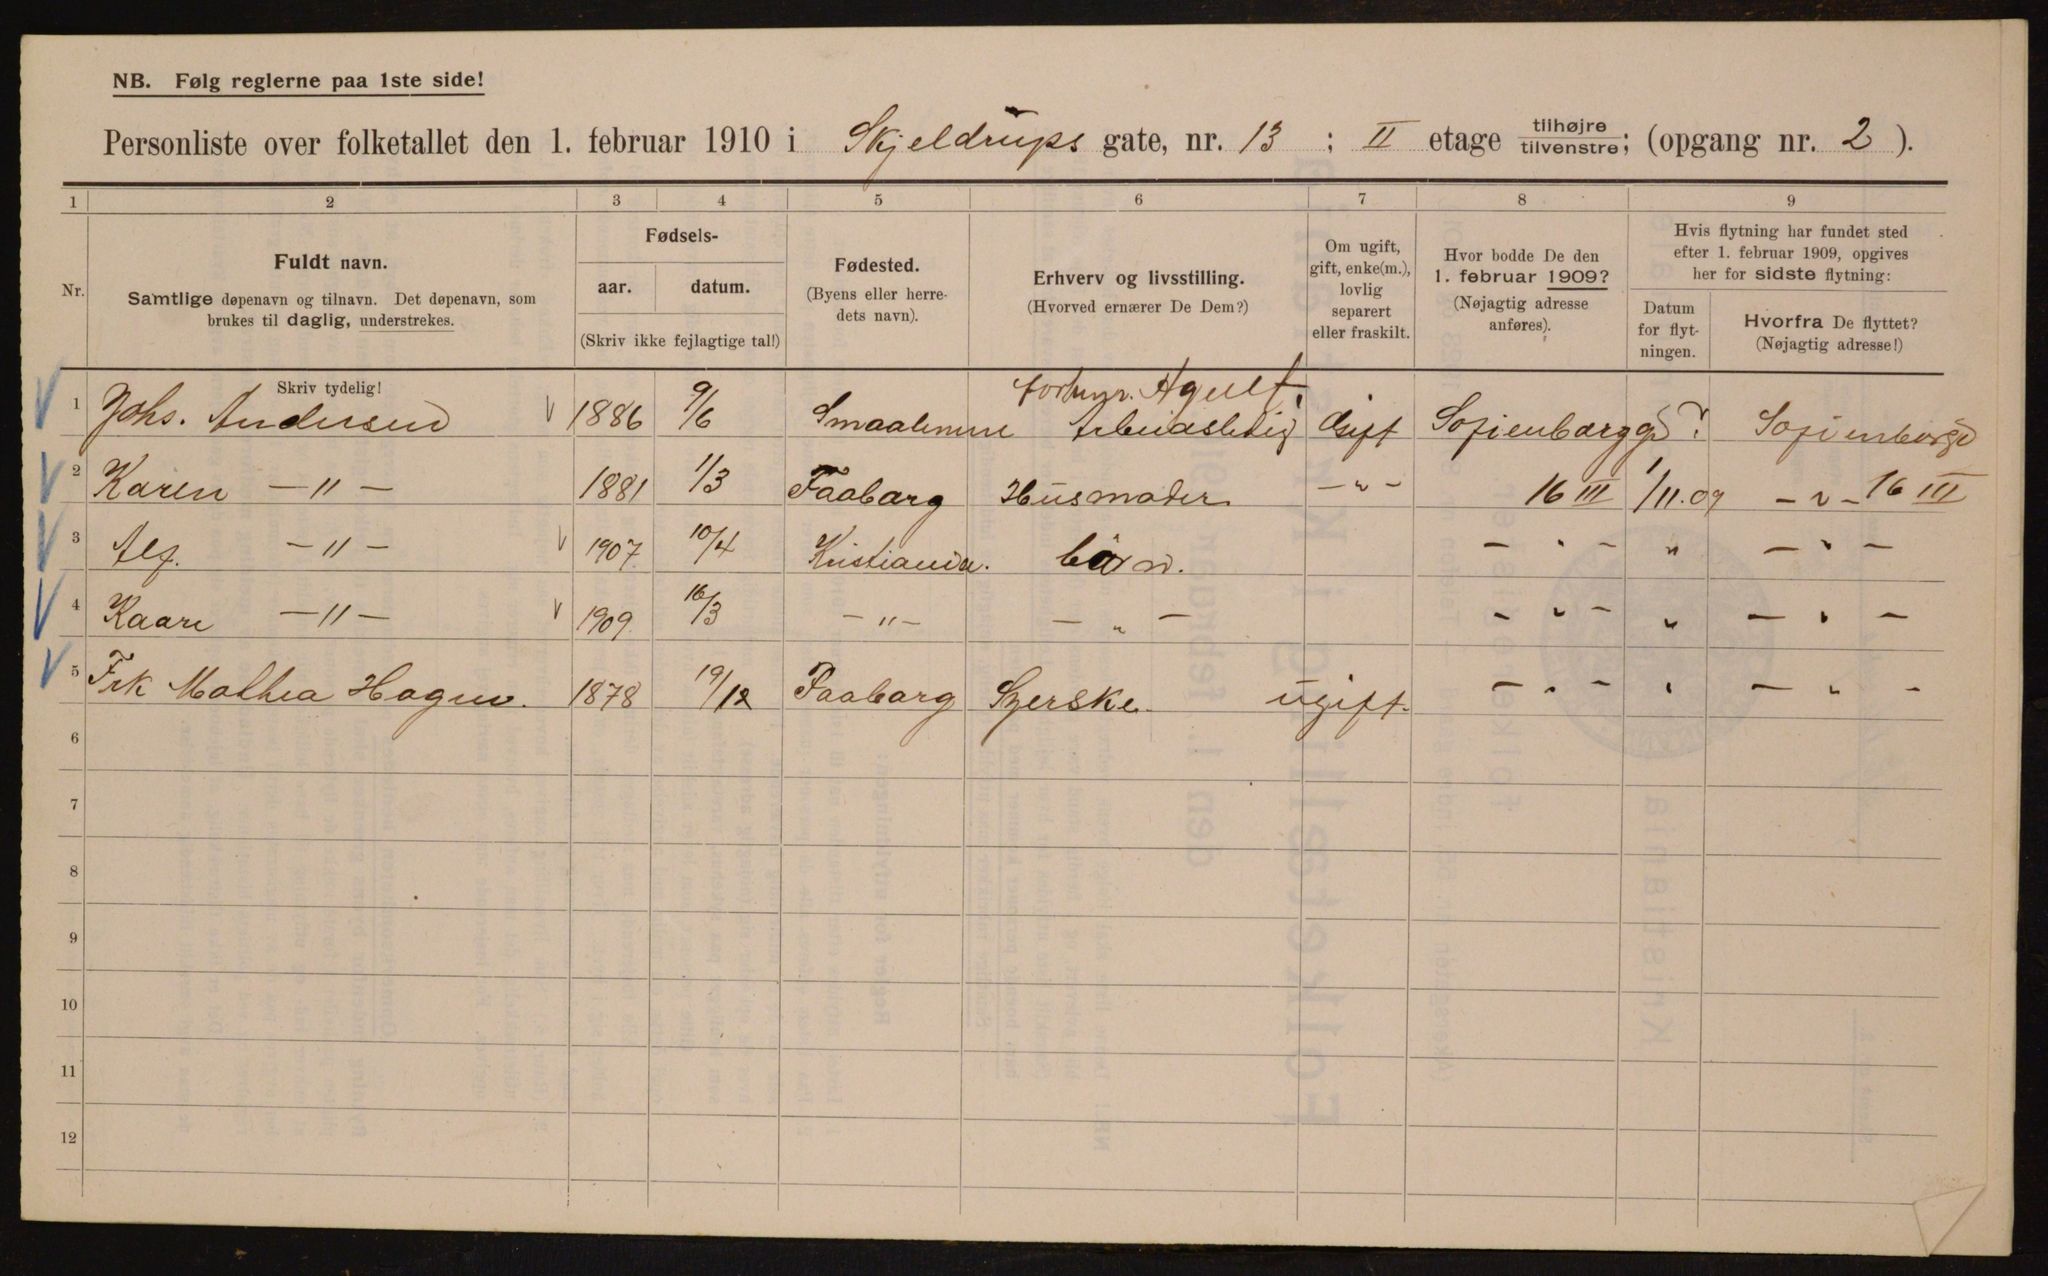 NB. Følg reglerne paa 1ste side!
Personliste over folketallet den 1. februar 1910 i Skjeldrups gate, nr. 13 ; II etage tilhøjre tilvenstre; (opgang nr. 2 ).
1 2 3 4 5 6 7 8 9
Nr.
Fuldt navn.
Samtlige døpenavn og tilnavn. Det døpenavn, som
brukes til daglig, understrekes.
Fødsels-
aar. datum.
(Skriv ikke fejlagtige tal!)
Fødested.
(Byens eller herre-
dets navn).
Erhverv og livsstilling.
(Hvorved ernærer De Dem?)
Om ugift,
gift, enke(m.),
lovlig
separert
eller fraskilt.
Hvor bodde De den
1. februar 1909?
(Nøjagtig adresse
anføres).
Hvis flytning har fundet sted
efter 1. februar 1909, opgives
her for sidste flytning:
Datum
for flyt-
ningen.
Hvorfra De flyttet?
(Nøjagtig adresse!)
Skriv tydelig!
1 Johs. Andersen 1886 9/6 Smaalenene Arbeidsledig Gift Sofienberggd ? Sofienberggd
2 Karen —"— 1881 1/3 Faaberg Husmoder —"— 16 III 1/11.09 —"— 16 III
3 Alf. —"— 1907 10/4 Kristiania. barn. —"— " —"—
4 Kaare —"— 1909 16/3 —"— —"— —"— " —"—
5 Frk Mathea Hagen. 1878 19/12 Faaberg Syerske ugift. —"— " —"—
6
7
8
9
10
11
12